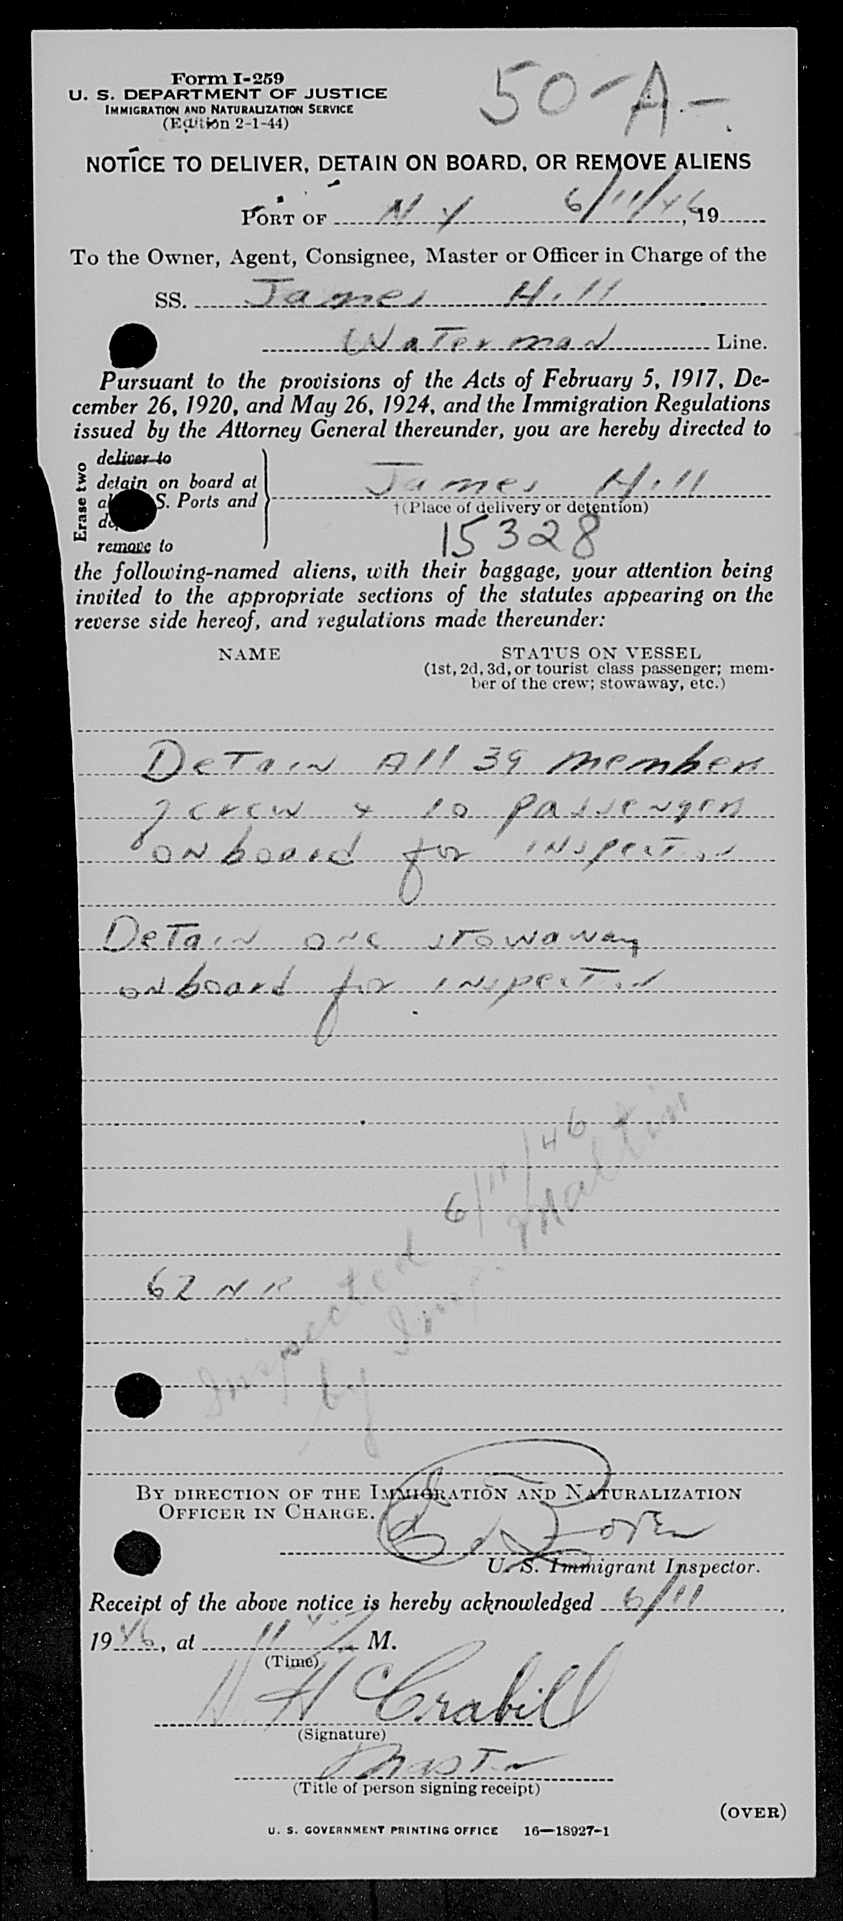 Form I-259
U. S. DEPARTMENT OF JUSTICE
IMMIGRATION AND NATURALIZATION SERVICE
(Edition 2-1-44)
50-A-
NOTICE TO DELIVER, DETAIN ON BOARD, OR REMOVE ALIENS
PORT OF N Y 6/11/46, 19
To the Owner, Agent, Consignee, Master or Officer in Charge of the
SS. James Hill
Waterman Line.
Pursuant to the provisions of the Acts of February 5, 1917, De-
cember 26, 1920, and May 26, 1924, and the Immigration Regulations
issued by the Attorney General thereunder, you are hereby directed to
Erase two
deliver to
detain on board at
S. Ports and
remove to
James Hill
†(Place of delivery or detention)
15328
the following-named aliens, with their baggage, your attention being
invited to the appropriate sections of the statutes appearing on the
reverse side hereof, and regulations made thereunder:
NAME STATUS ON VESSEL
(1st, 2d, 3d, or tourist class passenger; mem-
ber of the crew; stowaway, etc.)
Detain All 39 members
of crew + 10 passengers
on board for inspection
Detain one stowaway
on board for inspection
Inspected 6/11/46
by Insp.
62 N R
BY DIRECTION OF THE IMMIGRATION AND NATURALIZATION
OFFICER IN CHARGE.
U. S. Immigrant Inspector.
Receipt of the above notice is hereby acknowledged 6/11,
1946, at 11 M.
(Time)
H Crabill
(Signature)
Master
(Title of person signing receipt)
(OVER)
U. S. GOVERNMENT PRINTING OFFICE 16—18927-1